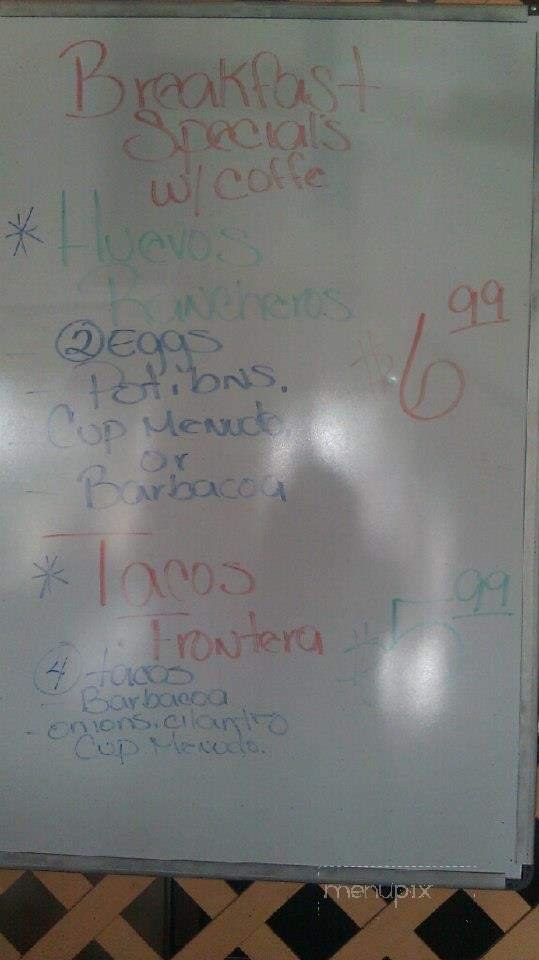 Breakfast
Specials
w/ coffe
* Huevos
Rancheros
$6 99
② Eggs
- Pot, bns.
Cup Menudo
or
- Barbacoa
* Tacos
Frontera
$5 99
④ tacos
- Barbacoa
- onions, cilantro
Cup Menudo.
menupix